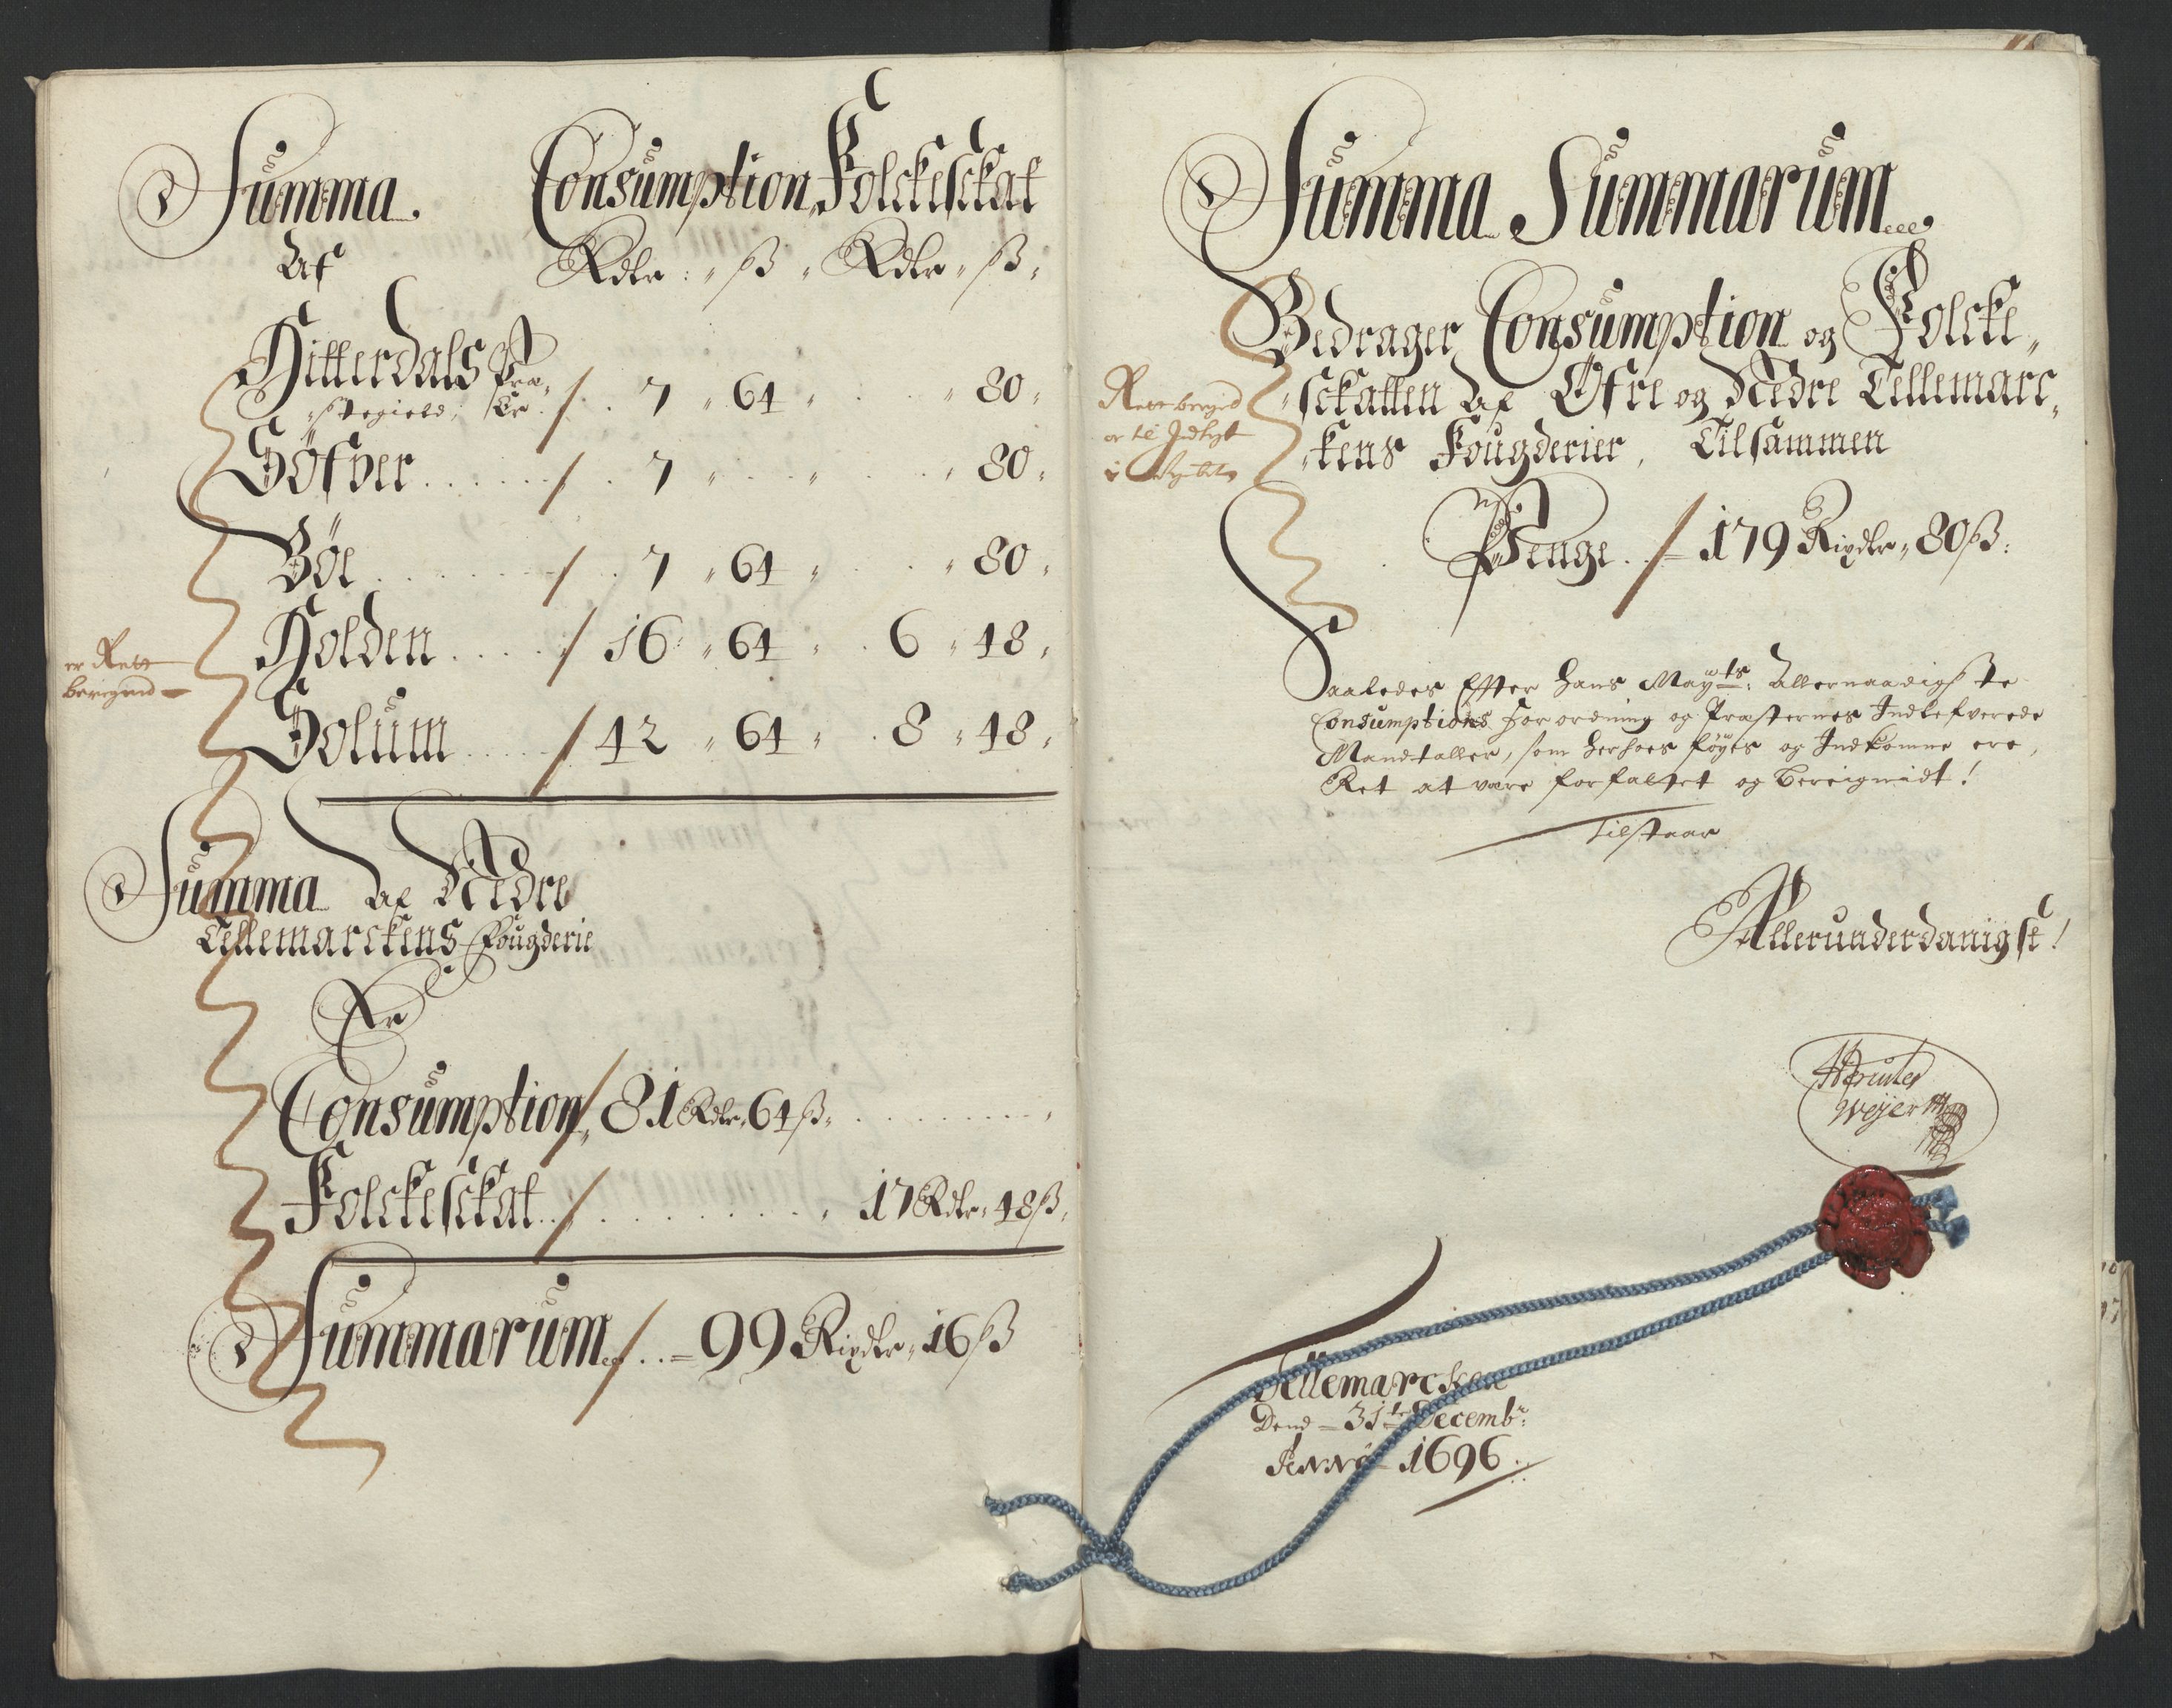 Summa. Consumption, Folckesckat
Af Rdlr: " ß " Rdlr " ß "
Hitterdals Præ-
stegield, Er / . 7 " 64 " . . " 80 "
Söfver . . . . . / . 7 " . . " . . " 80 "
Böe . . . . . . / . 7 " 64 " . . " 80 "
Holden . . . . / 16 " 64 " . 6 " 48 "
Solum . . . . / 42 " 64 " . 8 " 48 "
er Rett
beregned
Summa Af Nedre
Tellemarckens Fougderie
Er
Consumption, / 81 Rdlr, 64 ß, . . . . . . .
Folckesckat . . / . . . . . . . . , 17 Rdlr, 48 ß,
Summarum / . . = 99 Rixdlr, 16 ß
Summa Summarum
Bedrager Consumption og Folcke,
sckatten Af Öfre og Nedre Tellemarc,
kens Fougderier, Tilsammen
Rett bereg̃ed
er til Indtegt
Penge . . / = 179 Rixdlr, 80 ß:
Saaledes Effter Hans Mayts: Allernaadigste
Consumptions Forordning og Præsternes Indlefverede
Mandtaller, som herhoes föyes og Indkomne ere,
Ret at være forfattet og bereignidt!
tilstaar
Allerunderdanigst!
Weyer
Tellemarcken
Dend = 31te Decembr:
Anno 1696.